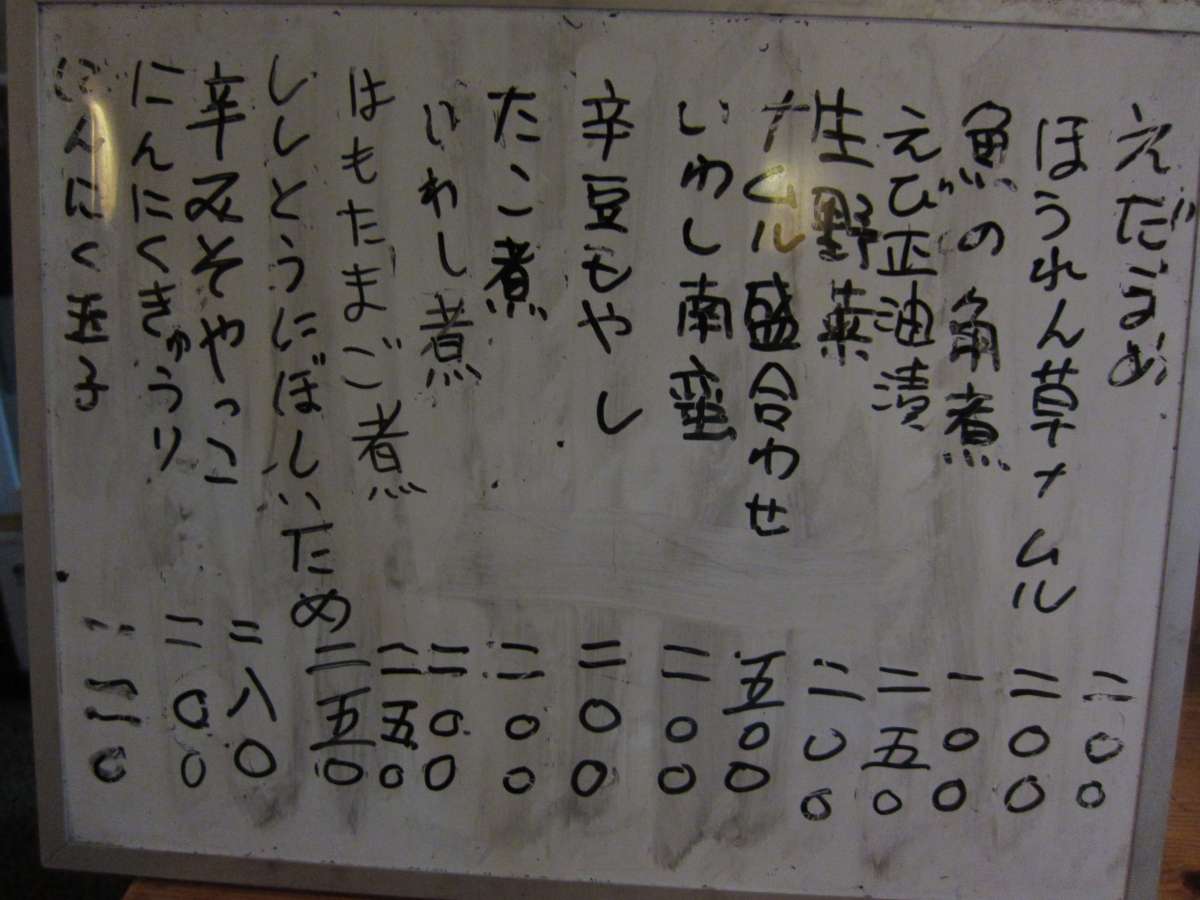 えだまめ 二〇〇
ほうれん草ナムル 二〇〇
魚の角煮 一〇〇
えび正油漬 二五〇
生野菜 二〇〇
ナムル盛合わせ 五〇〇
いわし南蛮 二〇〇
辛豆もやし 二〇〇
たこ煮 二〇〇
いわし煮 二〇〇
はもたまご煮 二五〇
ししとうにぼしいため 二五〇
辛みそやっこ 二八〇
にんにくきゅうり 二〇〇
にんにく玉子